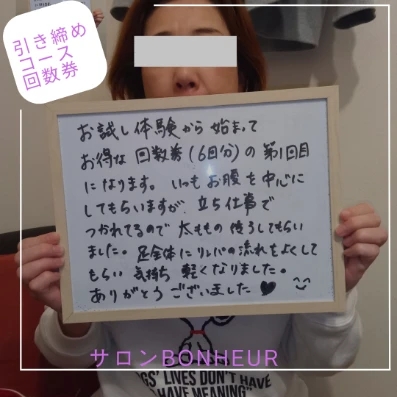 引き締め
コース
回数券
お試し体験から始まって
お得な回数券(6回分)の第1回目
になります。いつもお腹を中心に
してもらいますが、立ち仕事で
つかれてるので太ももの後ろしてもらい
ました。足全体にリンパの流れをよくして
もらい気持ち軽くなりました。
ありがとうございました♥
サロンBONHEUR
GS' LIVES DON'T HAVE
HAVE MEANING"